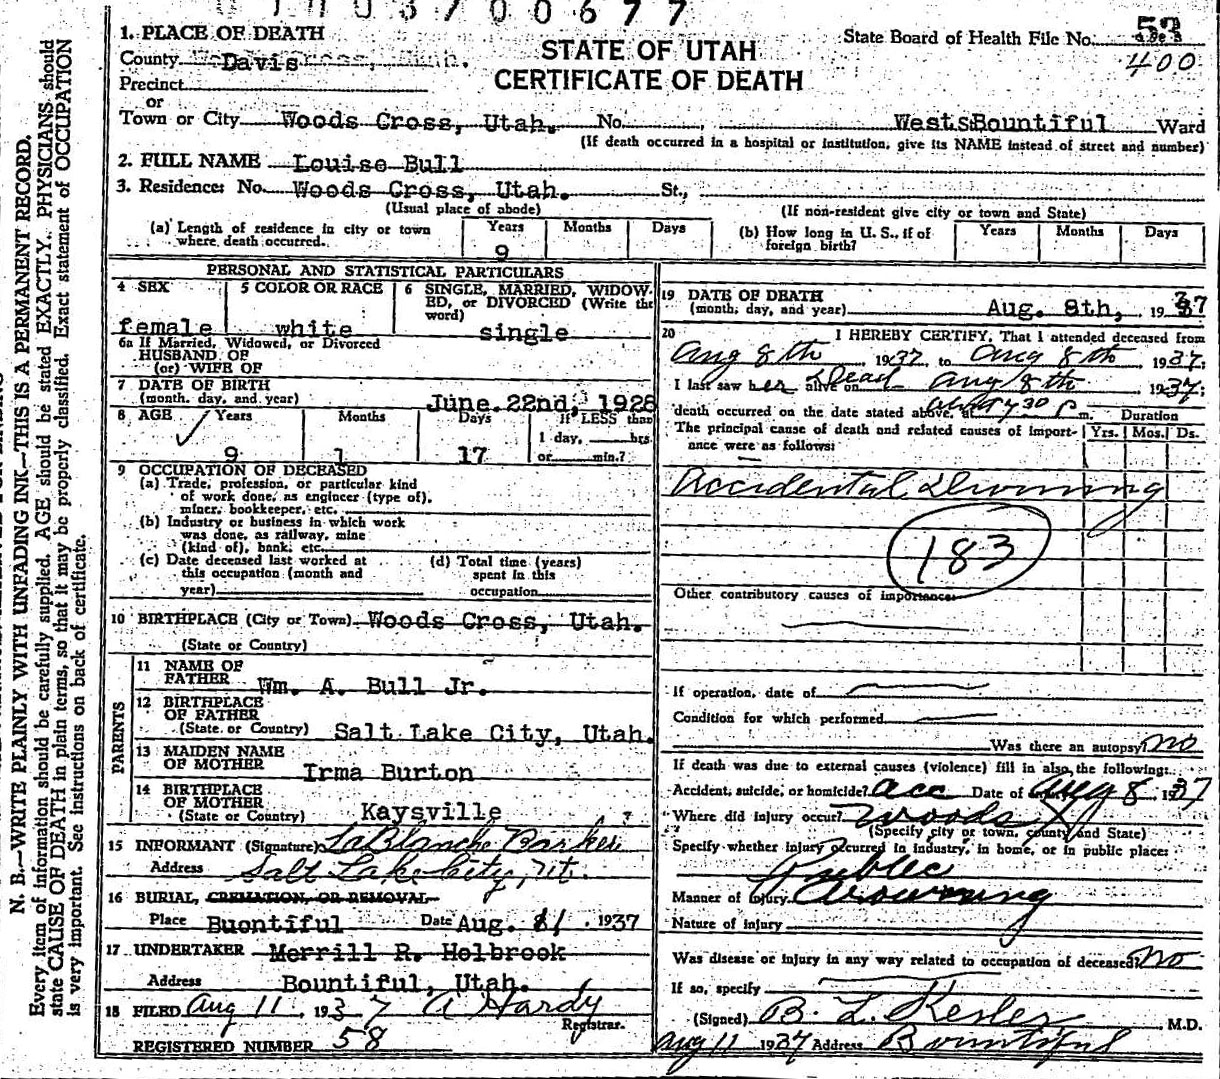 7 0 0 6 7 7
1. PLACE OF DEATH
STATE OF UTAH
CERTIFICATE OF DEATH
State Board of Health File No.
400
County Davis
Precinct
or
Town or City Woods Cross, Utah. No. WestsBountiful Ward
(If death occurred in a hospital or institution, give its NAME instead of street and number)
2. FULL NAME Louise Bull
3. Residence: No. Woods Cross, Utah. St.,
(Usual place of abode) (If non-resident give city or town and State)
(a) Length of residence in city or town where death occurred. Years 9 Months Days
(b) How long in U. S., if of foreign birth? Years Months Days
PERSONAL AND STATISTICAL PARTICULARS
4 SEX female
5 COLOR OR RACE white
6 SINGLE, MARRIED, WIDOWED, or DIVORCED (Write the word) single
6a If Married, Widowed, or Divorced
HUSBAND OF
(or) WIFE OF
7 DATE OF BIRTH
(month, day, and year) June. 22nd, 1928
8 AGE Years 9 Months 1 Days 17 If LESS than
1 day, hrs.
or min.?
9 OCCUPATION OF DECEASED
(a) Trade, profession, or particular kind
of work done, as engineer (type of),
miner, bookkeeper, etc.
(b) Industry or business in which work
was done, as railway, mine
(kind of), bank, etc.
(c) Date deceased last worked at
this occupation (month and
year)
(d) Total time (years)
spent in this
occupation
10 BIRTHPLACE (City or Town) Woods Cross, Utah.
(State or Country)
PARENTS
11 NAME OF
FATHER Wm. A. Bull Jr.
12 BIRTHPLACE
OF FATHER
(State or Country) Salt Lake City, Utah.
13 MAIDEN NAME
OF MOTHER Irma Burton
14 BIRTHPLACE
OF MOTHER
(State or Country) Kaysville
15 INFORMANT (Signature) LaBlanche Barker
Address Salt Lake City, Ut.
16 BURIAL, CREMATION, OR REMOVAL
Place Buontiful Date Aug. 11 1937
17 UNDERTAKER Merrill R. Holbrook
Address Bountiful, Utah.
18 FILED Aug 11, 1937 A Hardy
Registrar.
REGISTERED NUMBER 58
19 DATE OF DEATH
(month, day, and year) Aug. 8th, 1937
20 I HEREBY CERTIFY, That I attended deceased from
Aug 8th 1937, to Aug 8th 1937;
I last saw her alive on Dead Aug 8th 1937;
death occurred on the date stated above, at about 7 30 P m. Duration
The principal cause of death and related causes of importance were as follows: Yrs. Mos. Ds.
Accidental Drowning
183
Other contributory causes of importance:
If operation, date of
Condition for which performed
Was there an autopsy? No
If death was due to external causes (violence) fill in also the following:
Accident, suicide, or homicide? acc Date of injury Aug 8 1937
Where did injury occur? Woods X
(Specify city or town, county and State)
Specify whether injury occurred in industry, in home, or in public place:
Public
Manner of injury Drowning
Nature of injury
Was disease or injury in any way related to occupation of deceased? No
If so, specify
(Signed) B. L. Kesler M.D.
Aug 11 1937 Address Bountiful
N. B.—WRITE PLAINLY WITH UNFADING INK—THIS IS A PERMANENT RECORD.
Every item of information should be carefully supplied. AGE should be stated EXACTLY. PHYSICIANS should
state CAUSE OF DEATH in plain terms, so that it may be properly classified. Exact statement of OCCUPATION
is very important. See instructions on back of certificate.